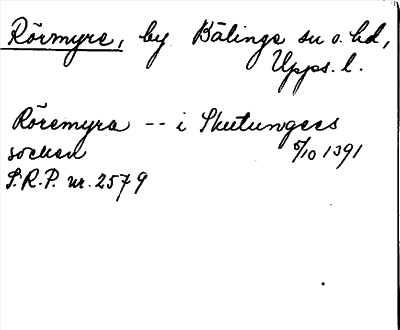 Rörmyre, by Bälinge sn o. hd,
Upps. l.
Röremyra -- i Skutunges
socken 5/10 1391
S.R.P. nr. 2579